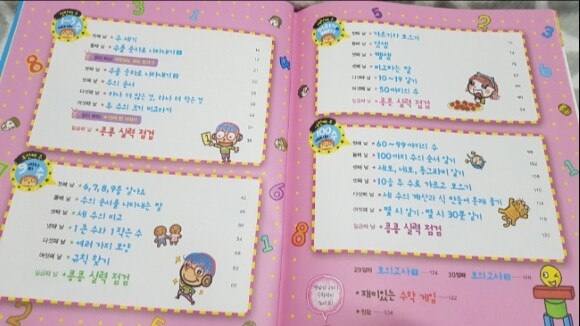 첫째 날 수 세기
둘째 날 수를 숫자로 나타내기 1
수를 숫자로 나타내기 2
수의 순서
다섯째 날 하나 더 많은 것, 하나 더 적은 것
여섯째 날 두 수의 크기 비교하기
일곱째 날 콩콩 실력 점검
첫째 날 6, 7, 8, 9를 알아요
둘째 날 수의 순서를 나타내는 말
셋째 날 세 수의 비교
넷째 날 1 큰 수와 1 작은 수
다섯째 날 여러 가지 모양
여섯째 날 규칙 찾기
일곱째 날 콩콩 실력 점검
첫째 날 가르기와 모으기
둘째 날 덧셈
셋째 날 뺄셈
넷째 날 비교하는 말
다섯째 날 10~19 알기
여섯째 날 50까지의 수
일곱째 날 콩콩 실력 점검
첫째 날 60~99까지의 수
둘째 날 100까지 수의 순서 알기
셋째 날 세모, 네모, 동그라미 알기
넷째 날 10을 두 수로 가르고 모으기
다섯째 날 세 수의 계산과 식 만들어 문제 풀기
여섯째 날 몇 시 알기·몇 시 30분 알기
일곱째 날 콩콩 실력 점검
29일째 모의고사 1 30일째 모의고사 2
재미있는 수학 게임
정답